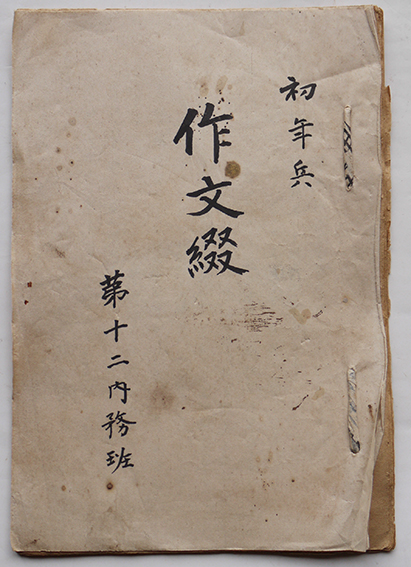 初年兵
作文綴
第十二内務班